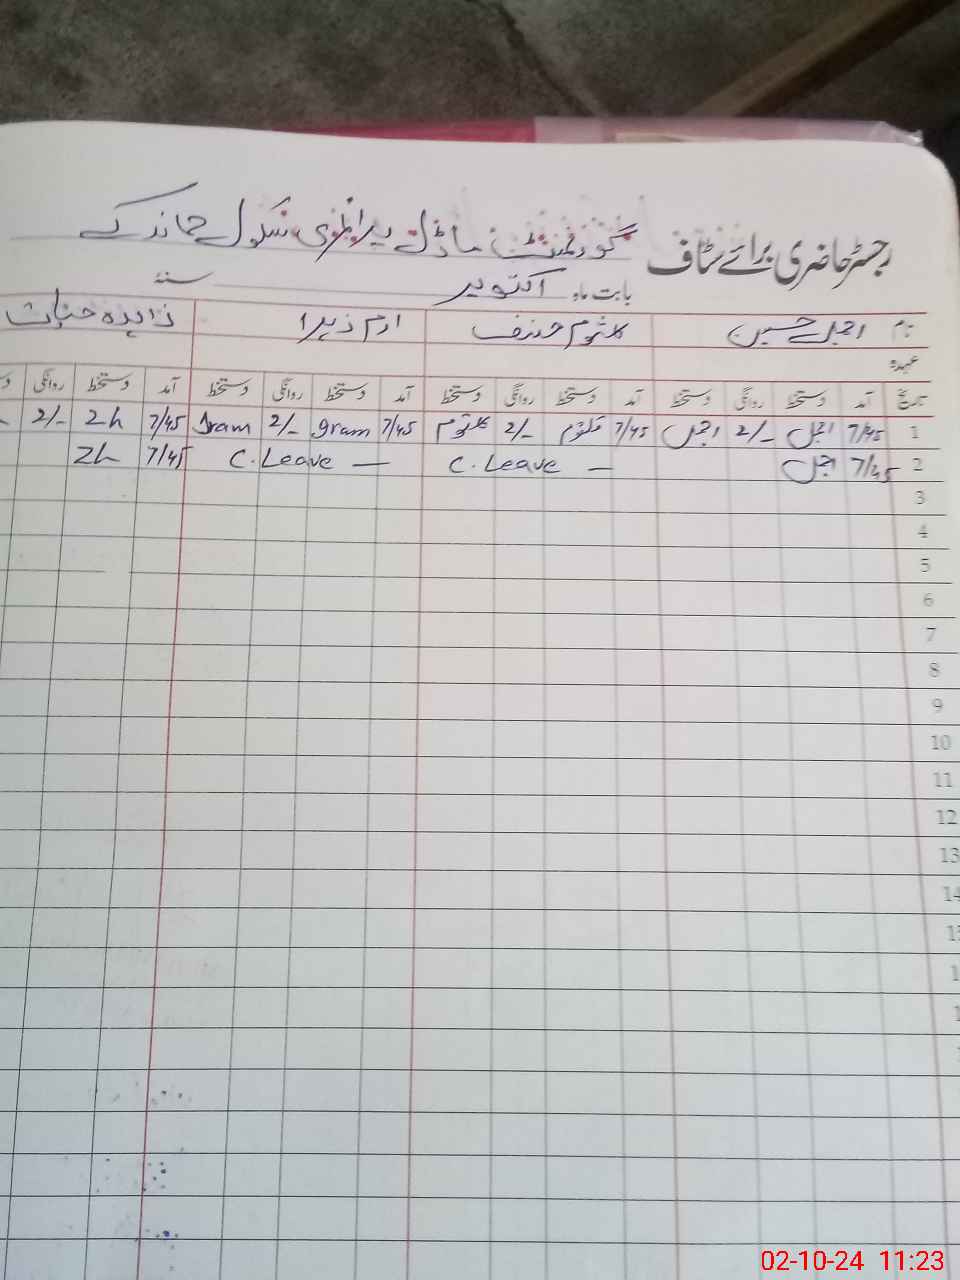 رجسٹر حاضری برائے سٹاف گورنمنٹ ماڈل پرائمری سکول
بابت ماہ اکتوبر سنہ
نام اجمل حسین کلثوم حنیف ارم زہرا زاہدہ
عہدہ
تاریخ آمد دستخط روانگی دستخط آمد دستخط روانگی دستخط آمد دستخط روانگی دستخط آمد دستخط روانگی
1 7/45 اجمل 2/- اجمل 7/45 کلثوم 2/- کلثوم 7/45 Iram 2/- Iram 7/45 Zh 2/-
2 7/45 اجمل C.Leave — C.Leave — 7/45 Zh
3
4
5
6
7
8
9
10
11
12
13
02-10-24 11:23